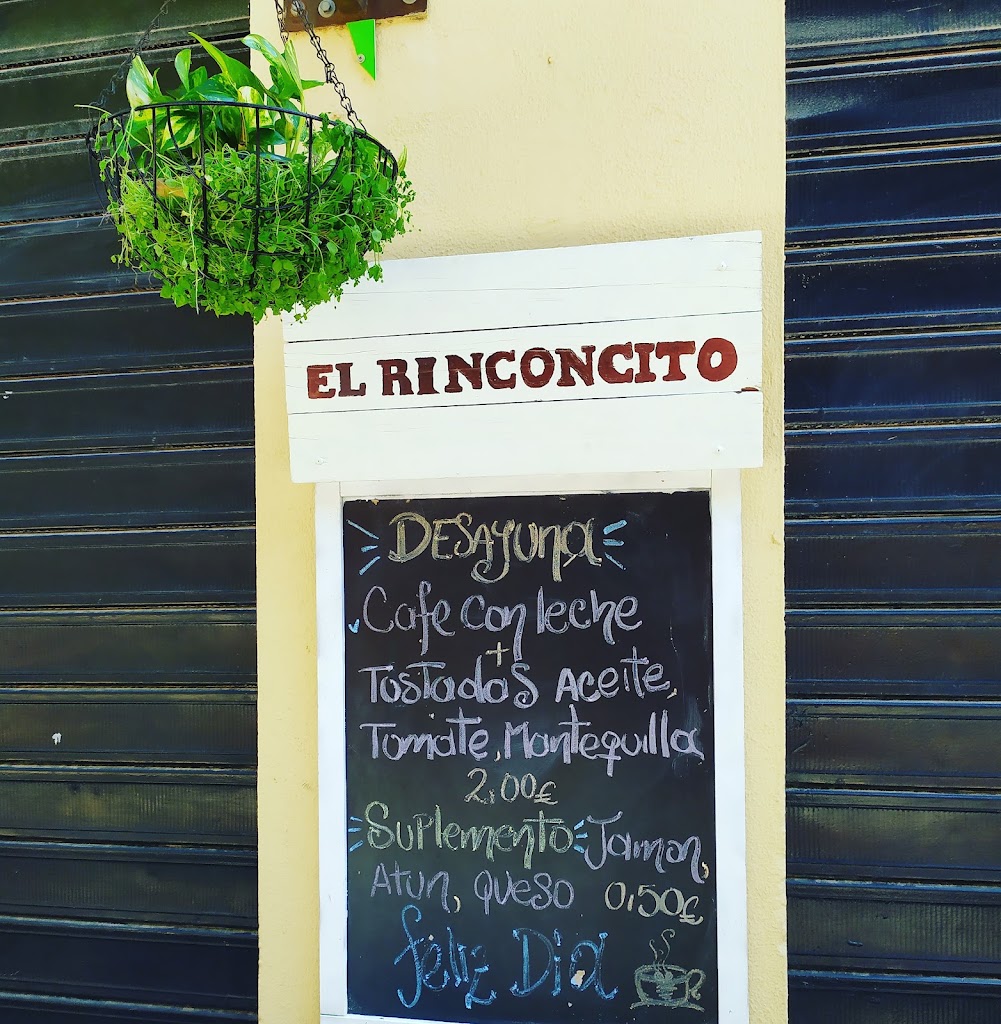 EL RINCONCITO
DESAYUNA
Cafe con leche
+
Tostadas Aceite,
Tomate, Mantequilla
2,00€
Suplemento Jamon,
Atun, queso 0,50€
feliz Dia